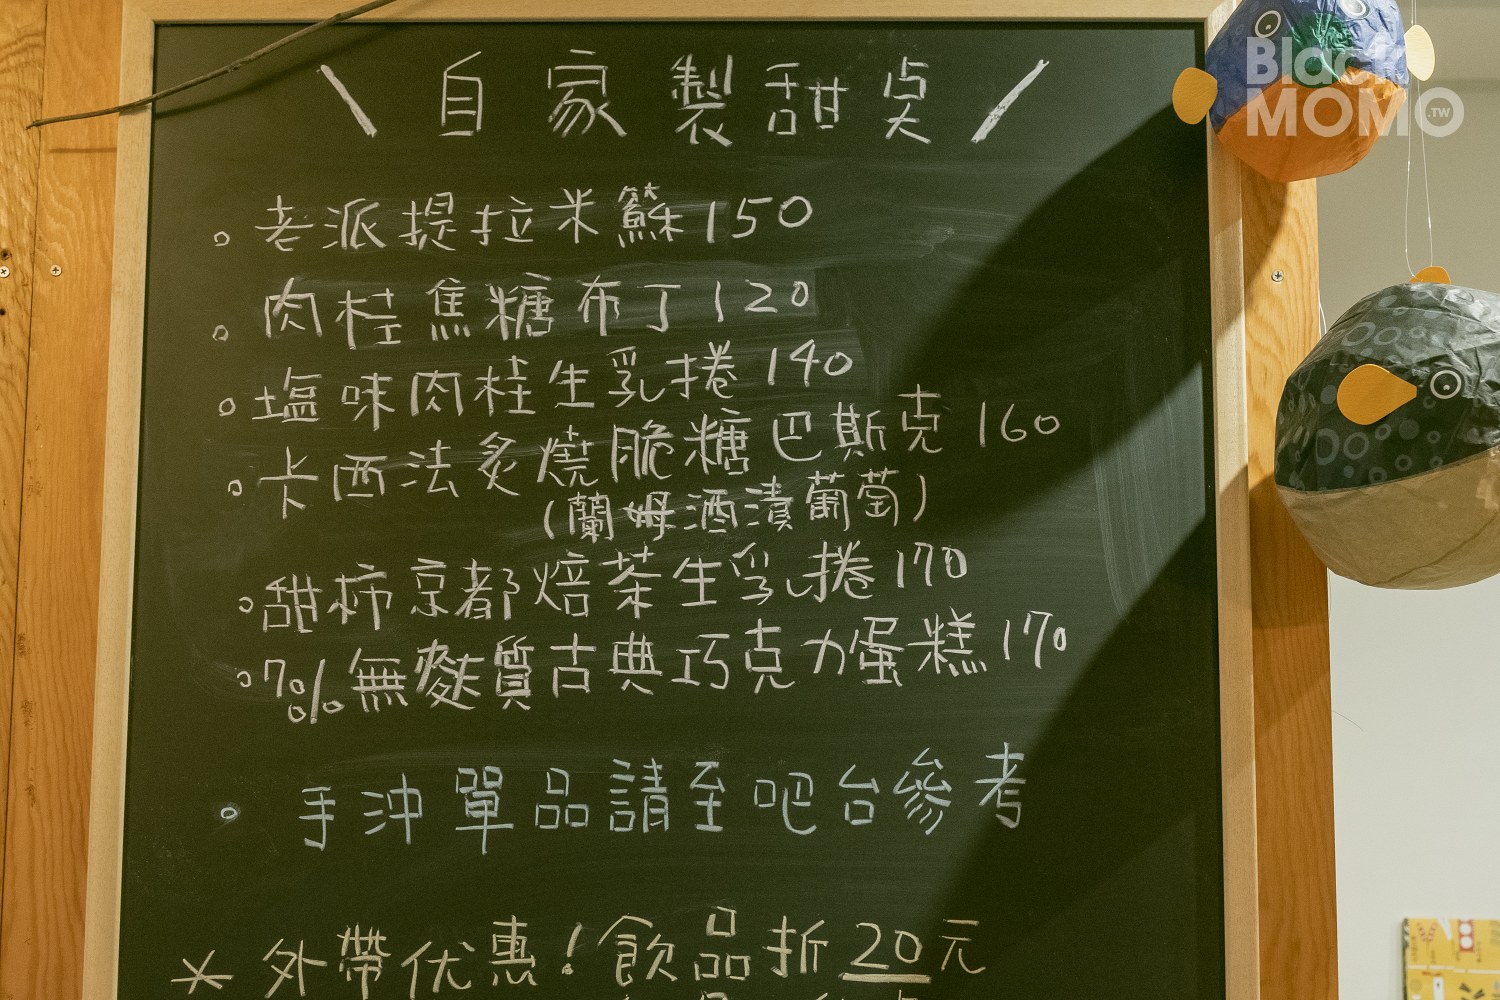 \ 自家製甜点 /
。老派提拉米蘇 150
。肉桂焦糖布丁 120
。塩味肉桂生乳捲 140
。卡西法炙燒脆糖巴斯克 160
(蘭姆酒漬葡萄)
。甜柿京都焙茶生乳捲 170
。70%無麩質古典巧克力蛋糕 170
。手沖單品請至吧台參考
* 外帶优惠!飲品折20元
Black
MOMO.TW